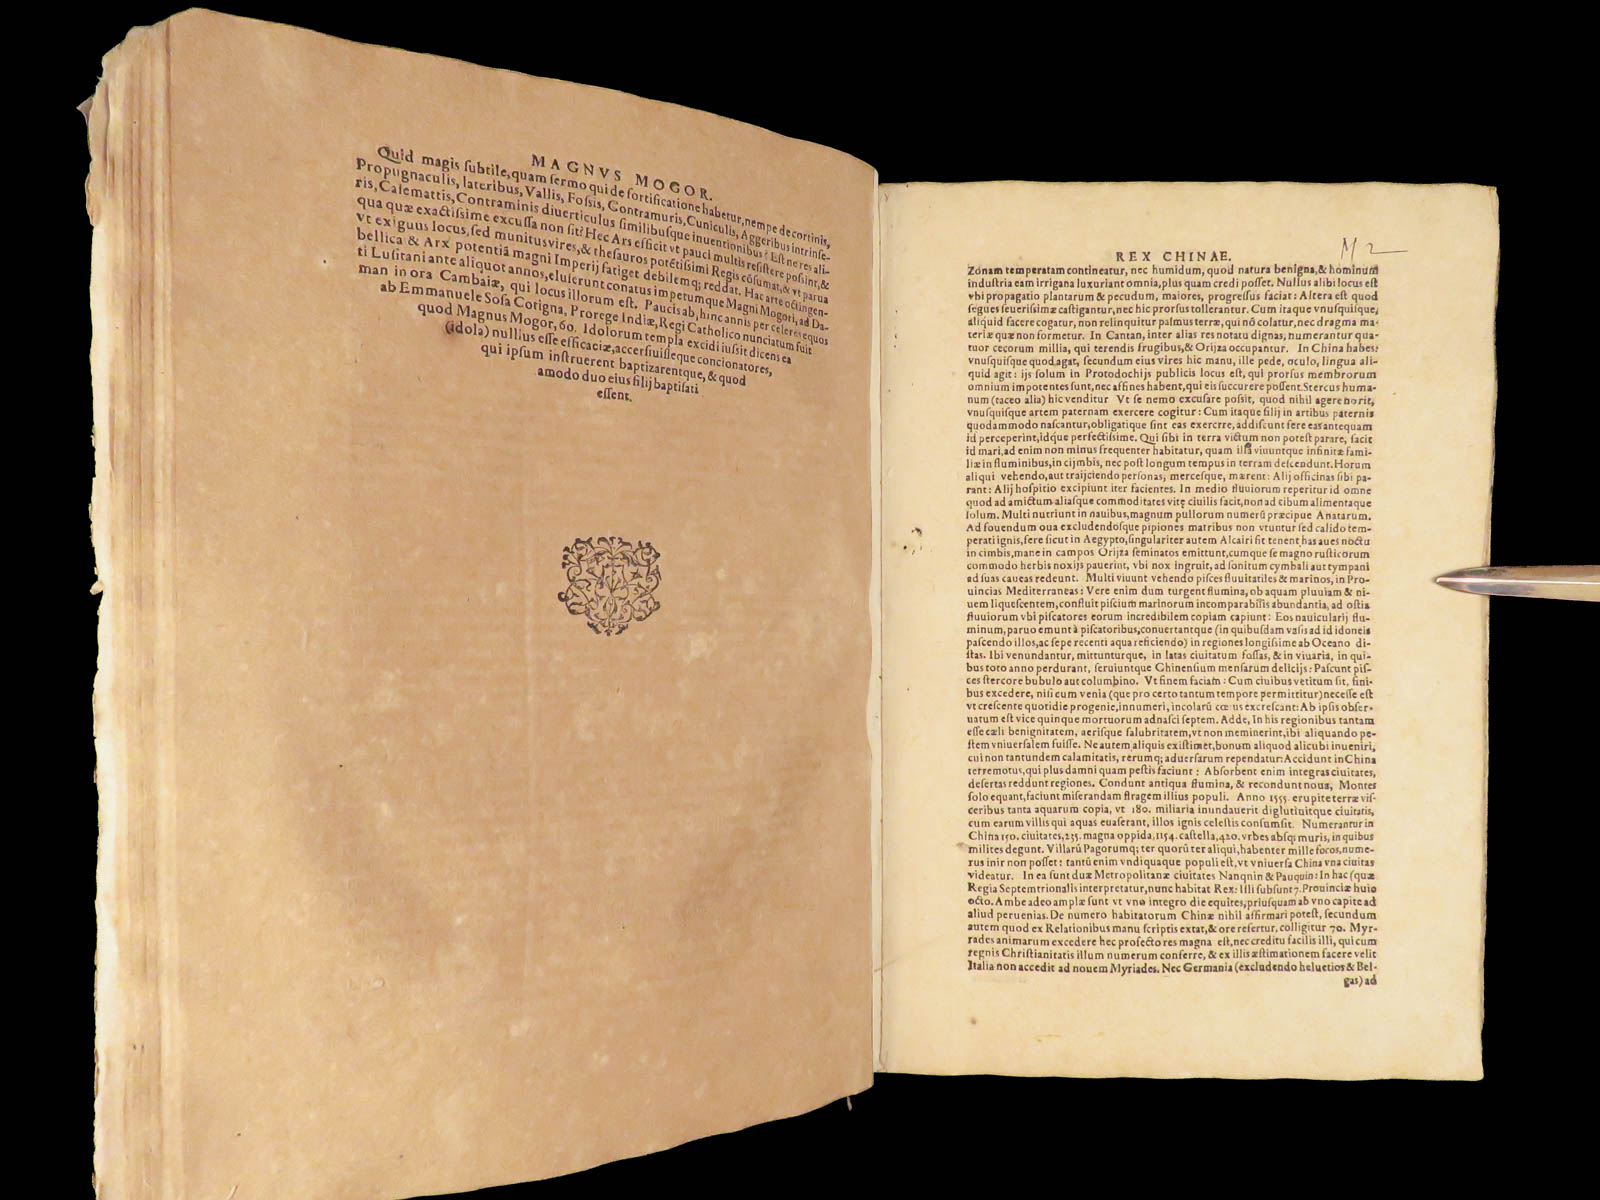 MAGNVS MOGOR.
Quid magis ſubtile, quam ſermo qui de fortificatione habetur, nempe de cortinis,
Propugnaculis, lateribus, Vallis, Foſsis, Contramuris, Cuniculis, Aggeribus intrinſe-
ris, Caſemattis, Contraminis diuerticulus ſimilibuſque inuentionibus? Eſt ne res ali-
qua quæ exactiſsime excuſſa non ſit? Hec Ars efficit vt pauci multis reſiſtere poſsint, &
vt exiguus locus, ſed munitus vires, & theſauros potētiſsimi Regis cōſumat, & vt parua
bellica & Arx potentiā magni Imperij fatiget debilemq; reddat. Hac arte octingen-
ti Luſitani ante aliquot annos, eluſerunt conatus impetumque Magni Mogori, ad Da-
man in ora Cambaiæ, qui locus illorum eſt. Paucis ab, hinc annis per celeres equos
ab Emmanuele Soſa Cotigna, Prorege Indiæ, Regi Catholico nunciatum fuit
quod Magnus Mogor, 60. Idolorum templa excidi iuſsit dicens ea
(idola) nullius eſſe efficaciæ, accerſuiſſeque concionatores,
qui ipſum inſtruerent baptizarentque, & quod
amodo duo eius filij baptiſati
eſſent.
M 2
REX CHINAE.
Zonam temperatam contineatur, nec humidum, quod natura benigna, & hominum
induſtria eam irrigana luxuriant omnia, plus quam credi poſſet. Nullus alibi locus eſt
vbi propagatio plantarum & pecudum, maiores, progreſſus faciat: Altera eſt quod
ſegues ſeueriſsimæ caſtigantur, nec hic prorſus tollerantur. Cum itaque vnuſquiſque,
aliquid facere cogatur, non relinquitur palmus terræ, qui nō colatur, nec dragma ma-
teriæ quæ non formetur. In Cantan, inter alias res notatu dignas; numerantur qua-
tuor cecorum millia, qui terendis frugibus, & Orijza occupantur. In China habes:
vnuſquiſque quod agat, ſecundum eius vires hic manu, ille pede, oculo, lingua ali-
quid agit: ijs ſolum in Protodochijs publicis locus eſt, qui prorſus membrorum
omnium impotentes ſunt, nec affines habent, qui eis ſuccurere poſſent. Stercus huma-
num (taceo alia) hic venditur Vt ſe nemo excuſare poſsit, quod nihil agere norit,
vnuſquiſque artem paternam exercere cogitur: Cum itaque filij in artibus paternis
quodammodo naſcantur, obligatique ſint eas exercrre, addiſcunt fere eas antequam
id perceperint, idque perfectiſsime. Qui ſibi in terra victum non poteſt parare, facit
id mari, ad enim non minus frequenter habitatur, quam illa viuuntque infinitæ fami-
liæ in fluminibus, in cijmbis, nec poſt longum tempus in terram deſcendunt. Horum
aliqui vehendo, aut traijciendo perſonas, merceſque, mærent: Alij officinas ſibi pa-
rant: Alij hoſpitio excipiunt iter facientes. In medio fluuiorum reperitur id omne
quod ad amictum aliaſque commoditates vitę ciuilis facit, non ad cibum alimentaque
ſolum. Multi nutriunt in nauibus, magnum pullorum numerū præcipue Anatarum.
Ad fouendum oua excludendoſque pipiones matribus non vtuntur ſed calido tem-
perati ignis, fere ſicut in Aegypto, ſingulariter autem Alcairi ſit tenent, has aues noctu
in cimbis, mane in campos Orijza ſeminatos emittunt, cumque ſe magno ruſticorum
commodo herbis noxijs pauerint, vbi nox ingruit, ad ſonitum cymbali aut tympani
ad ſuas caueas redeunt. Multi viuunt vehendo piſces fluuitatiles & marinos, in Pro-
uincias Mediterraneas: Vere enim dum turgent flumina, ob aquam pluuiam & ni-
uem liqueſcentem, confluit piſcium marinorum incomparabilis abundantia, ad oſtia
fluuiorum vbi piſcatores eorum incredibilem copiam capiunt: Eos nauicularij flu-
minum, paruo emunt à piſcatoribus, conuertantque (in quibuſdam vaſis ad id idoneis
paſcendo illos, ac ſepe recenti aqua reficiendo) in regiones longiſsime ab Oceano di-
ſtas. Ibi venundantur, mittunturque, in latas ciuitatum foſſas, & in viuaria, in qui-
bus toto anno perdurant, ſeruiuntque Chinenſium menſarum delicijs: Paſcunt piſ-
ces ſtercore bubulo aut columbino. Vt finem faciam: Cum ciuibus vetitum ſit, fini-
bus excedere, niſi cum venia (que pro certo tantum tempore permittitur) neceſſe eſt
vt creſcente quotidie progenie, innumeri, incolarū cœtus excreſcant: Ab ipſis obſer-
uatum eſt vice quinque mortuorum adnaſci ſeptem. Adde, In his regionibus tantam
eſſe cæli benignitatem, aeriſque ſalubritatem, vt non meminerint, ibi aliquando pe-
ſtem vniuerſalem fuiſſe. Ne autem aliquis exiſtimet, bonum aliquod alicubi inueniri,
cui non tantundem calamitatis, rerumq; aduerſarum rependatur: Accidunt in China
terremotus, qui plus damni quam peſtis faciunt: Abſorbent enim integras ciuitates,
deſertas reddunt regiones. Condunt antiqua flumina, & recondunt noua, Montes
ſolo equant, faciunt miſerandam ſtragem illius populi. Anno 1555. erupit e terræ viſ-
ceribus tanta aquarum copia, vt 180. miliaria inundauerit diglutiuitque ciuitatis,
cum earum villis qui aquas euaſerant, illos ignis celeſtis conſumſit. Numerantur in
China 150. ciuitates, 235. magna oppida, 1154. caſtella, 420. vrbes abſq; muris, in quibus
milites degunt. Villarū Pagorumq; ter quorū ter aliqui, habenter mille focos, nume-
rus inir non poſſet: tantū enim vndiquaque populi eſt, vt vniuerſa China vna ciuitas
videatur. In ea ſunt duæ Metropolitanæ ciuitates Nanqnin & Pauquin: In hac (quæ
Regia Septemtrionalis interpretatur, nunc habitat Rex: Illi ſubſunt 7. Prouinciæ huio
octo. Ambe adeo amplæ ſunt vt vno integro die equites, priuſquam ab vno capite ad
aliud perueniaſ. De numero habitatorum Chinæ nihil affirmari poteſt, ſecundum
autem quod ex Relationibus manu ſcriptis extat, & ore refertur, colligitur 70. Myr-
rades animarum excedere hec profecto res magna eſt, nec creditu facilis illi, qui cum
regnis Chriſtianitatis illum numerum conferre, & ex illis æſtimationem facere velit
Italia non accedit ad nouem Myriades. Nec Germania (excludendo heluetios & Bel-
gas) ad